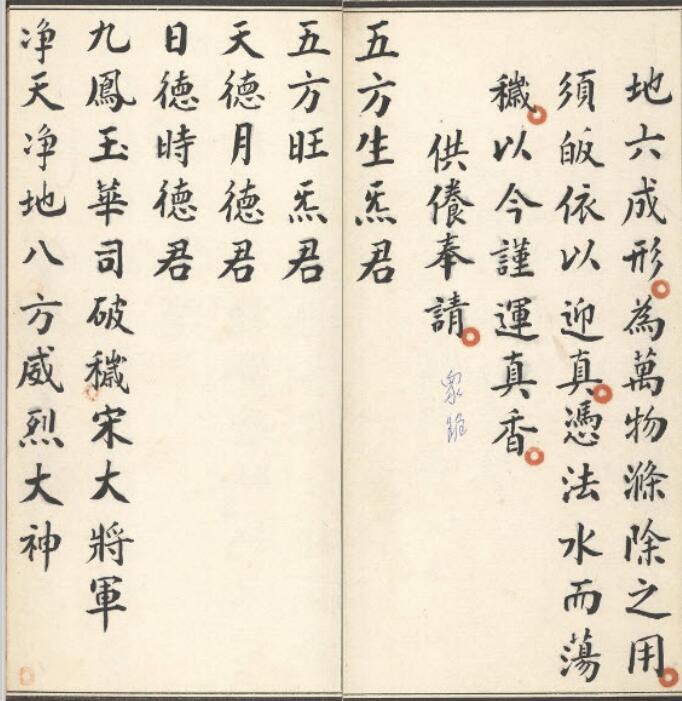 地六成形為萬物滌除之用
須皈依以迎真憑法水而蕩
穢以今謹運真香
供養奉請
五方生炁君
五方旺炁君
天德月德君
日德時德君
九鳳玉華司破穢宋大將軍
净天净地八方威烈大神